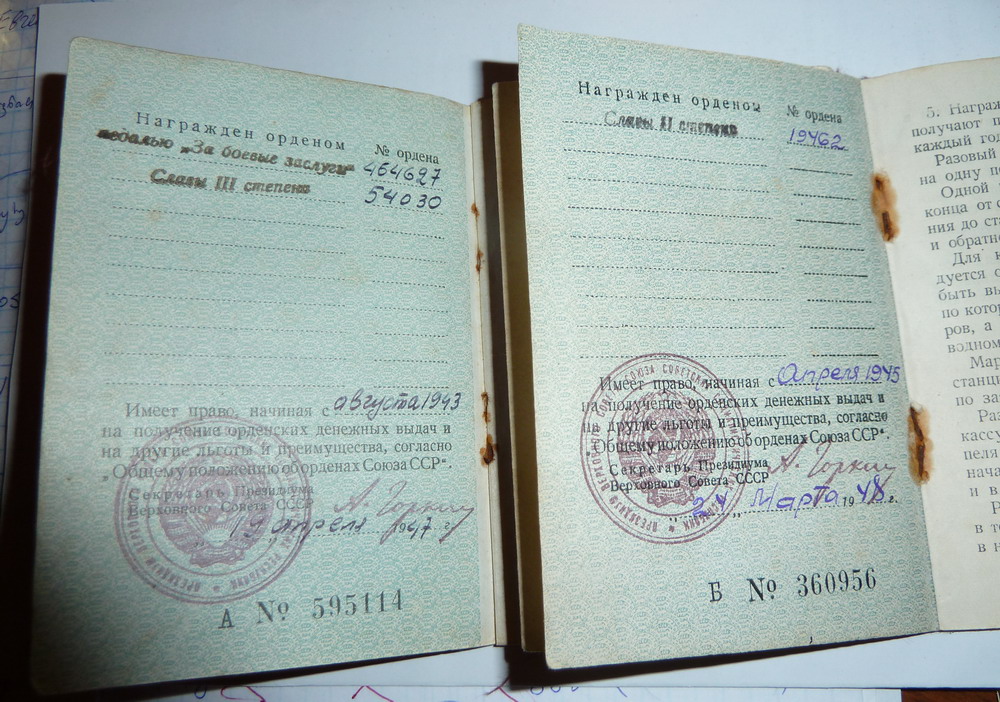 Награжден орденом
№ ордена
медалью „За боевые заслуги"
464697
Славы III степени
54030
Имеет право, начиная с августа 1943
на получение орденских денежных выдач и
на другие льготы и преимущества, согласно
„Общему положению об орденах Союза ССР".
Секретарь Президиума
Верховного Совета СССР
А. Горкин
апреля 1947 г.
А № 595114
Награжден орденом
№ ордена
Славы II степени
19462
Имеет право, начиная с Апреля 1945
на получение орденских денежных выдач и
на другие льготы и преимущества, согласно
„Общему положению об орденах Союза ССР".
Секретарь Президиума
Верховного Совета СССР
А. Горкин
„24" Марта 1948 г.
Б № 360956
5. Награж
получают
каждый го
Разовый
на одну по
Одной
конца от с
ния до ст
и обратн
Для
дуется о
быть вы
по кото
ров, а
водном
Мар
станц
по за
Ра
кассу
пеля
нача
и в
Р
в т
в н